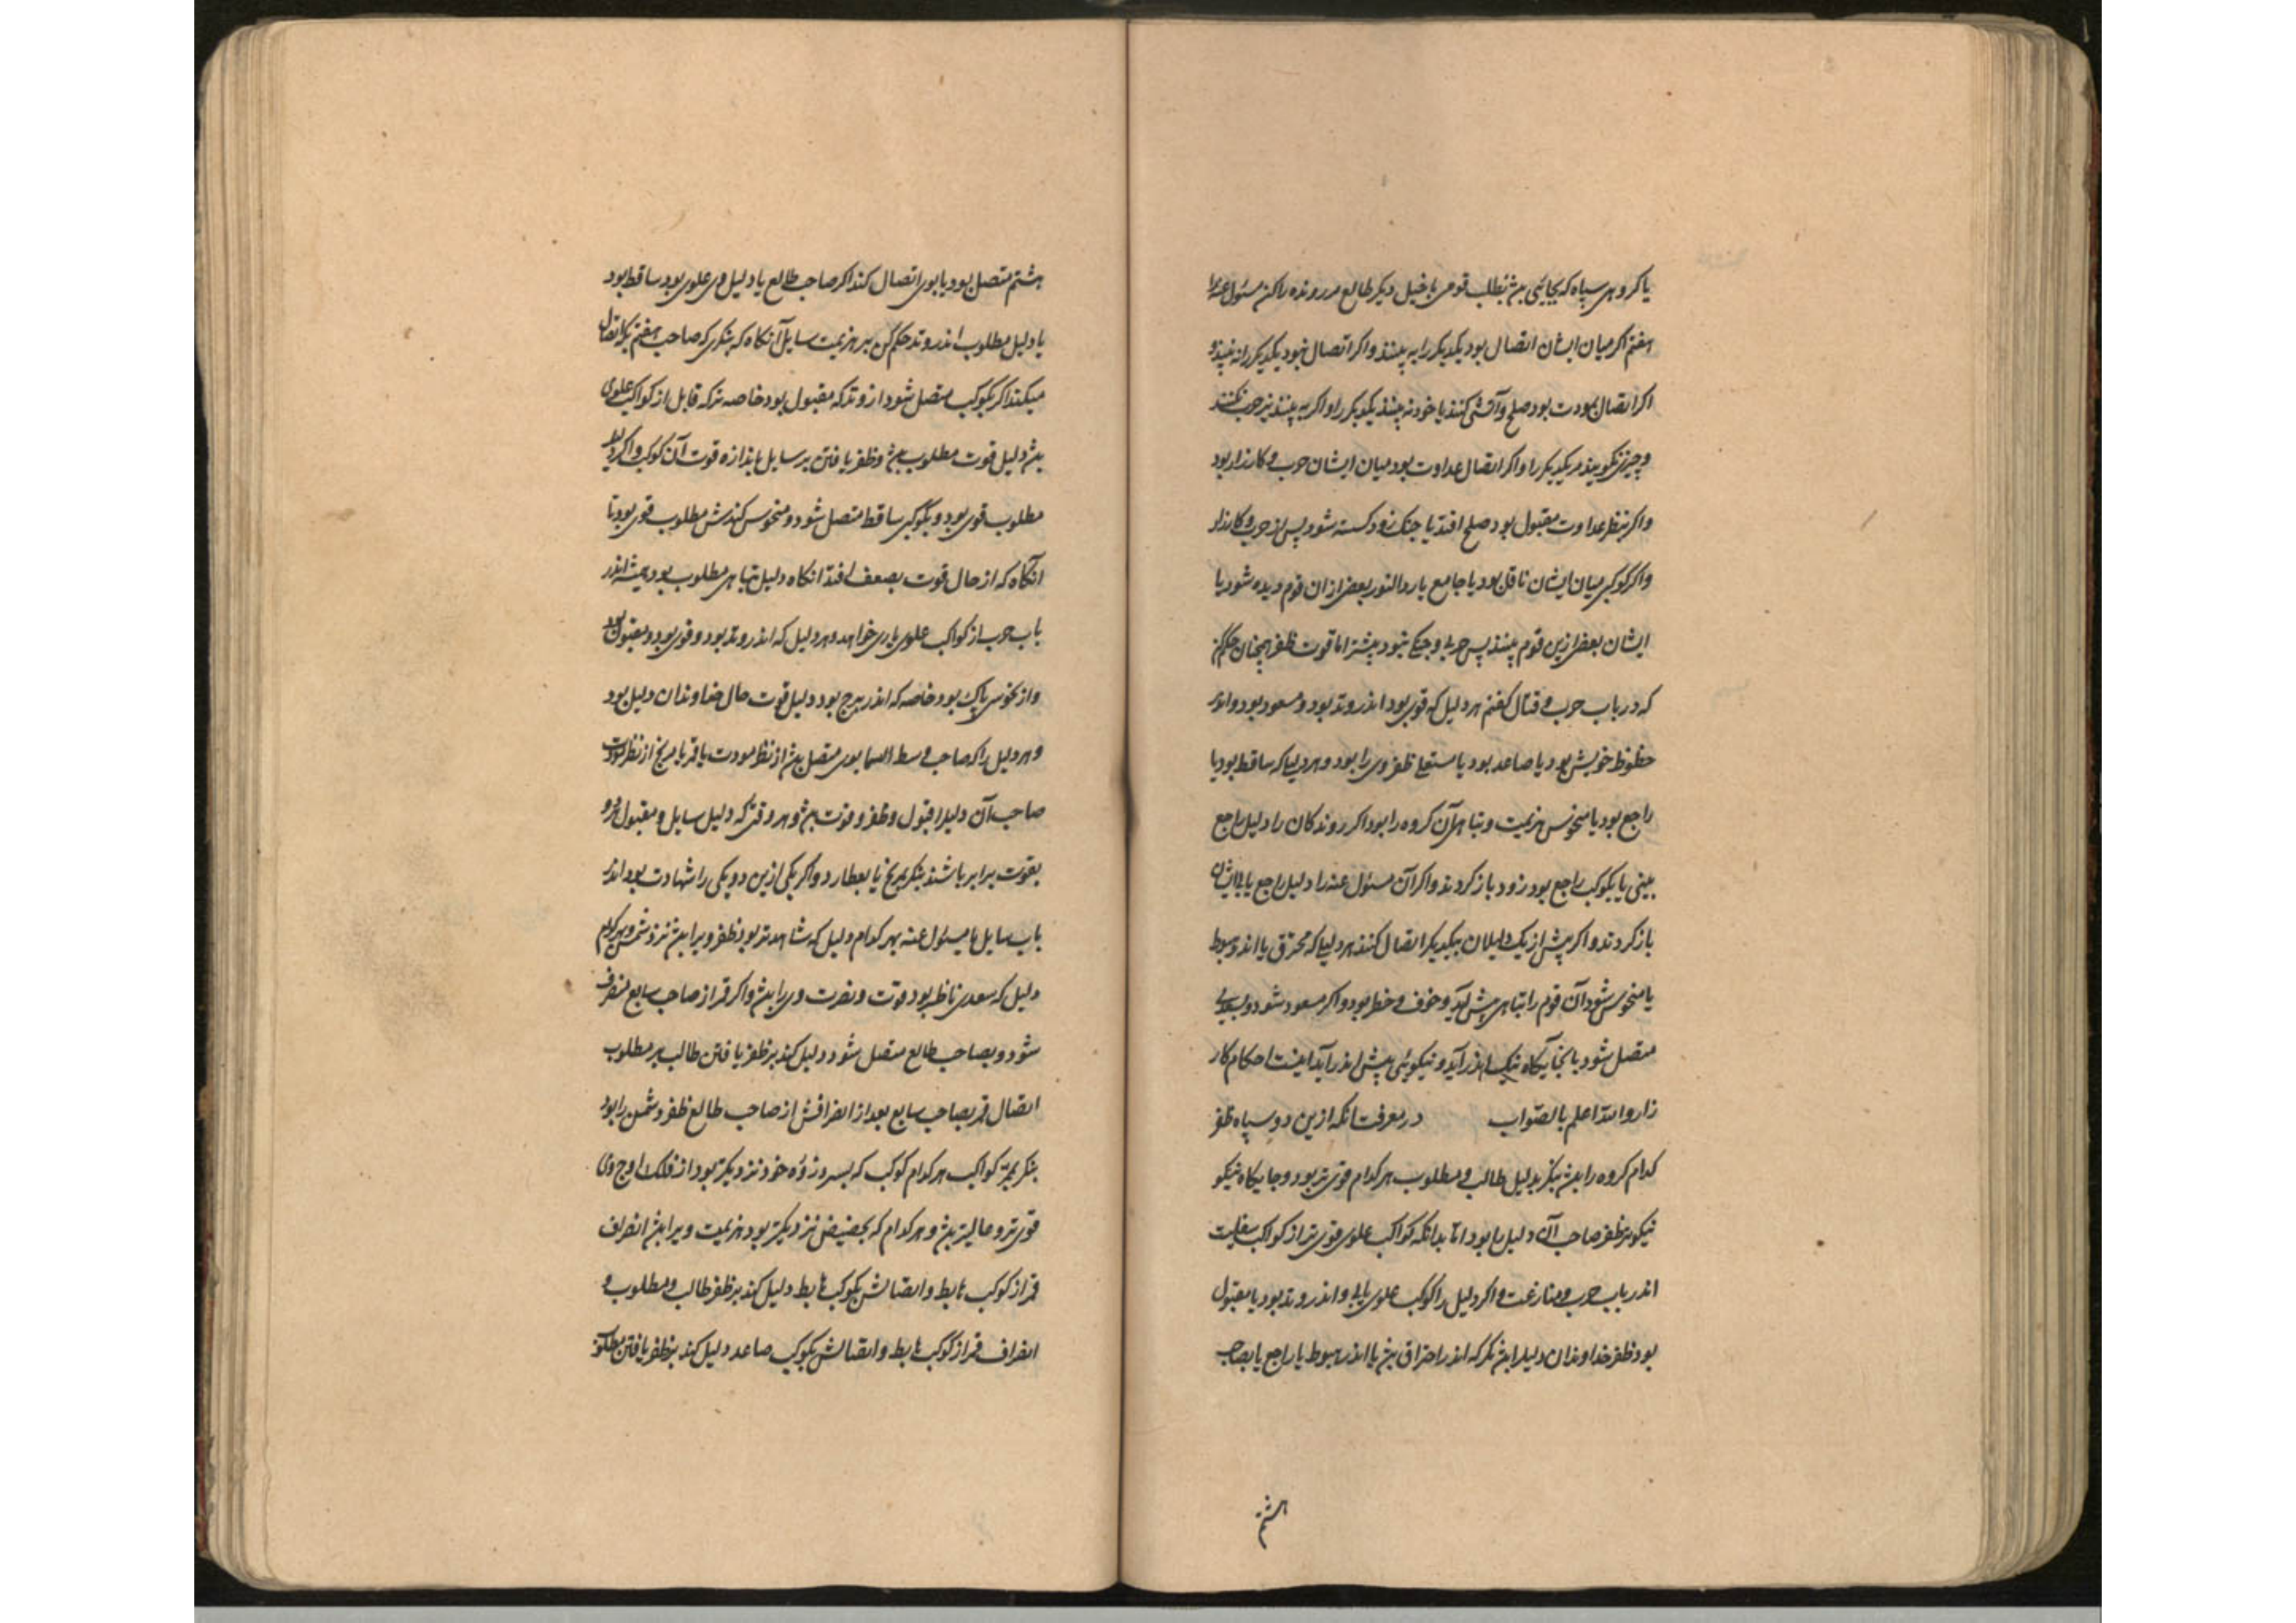 یا کروهی سپاه که بجائی بیش بطلب قومی یا خیل دیکر طالع مر رونده را کن مسئول عنه را
هفتم اکر میان ایشان اتصال بود یکدیکر را به بینند و اکر اتصال نبود یکدیکر را نه بینند و
اکر اتصال بمودت بود صلح و آشتی کنند یا خود نه بینند یکدیکر را و اکر به بینند نیز حرب نکنند
و چیزی نکویند مر یکدیکر را و اکر اتصال عداوت بود میان ایشان حرب و کارزار بود
و اکر بنظر عداوت مقبول بود صلح افتد یا جنک زود کسسته شود پس از حرب و کارزار
و اکر کوکبی میان ایشان ناقل بود یا جامع یا رد النور بعضی از ان قوم دیده شود یا
ایشان بعضی ازین قوم بینند پس حربی و جنکی نبود بیشتر اما قوت ظفر همچنان حکم کن
که در باب حرب و قتال کفتم هر دلیل که قوی بود اندر وتد بود و مسعود بود و اندر
حظوظ خویش بود یا صاعد بود یا مستعلی ظفر وی را بود و هر دلیلی که ساقط بود یا
راجع بود یا منحوس هزیمت و تباهی آن کروه را بود اکر روندکان را دلیل راجع
بینی یا بکوکب راجع بود زود باز کردند و اکر آن مسئول عنه را دلیل راجع یابی ایشان
باز کردند و اکر پیش از یک دلیلان بیکدیکر اتصال کنند هر دلیلی که محترق یا اندر هبوط
یا منحوس شود آن قوم را تباهی پیش آید و خوف و خطر بود و اکر مسعود شود و بسعدی
متصل شود یا بجایکاه نیک اندر آید و نیکوئی پیش اندر آید اینست احکام کار
زار و الله اعلم بالصواب در معرفت آنکه ازین دو سپاه ظفر
کدام کروه را بیش بنکر بدلیل طالب و مطلوب هر کدام قوی تر بود و جایکاه نیکو
نیکوتر ظفر صاحب آن دلیل را بود اما بدانکه کواکب علوی قوی تر از کواکب سفلیست
اندر باب حرب و منازعت و اکر دلیل را کوکب علوی یابی و اندر وتد بود یا مقبول
بود ظفر خداوندان دلیل را بیش مکر که اندر احتراق بیش یا اندر هبوط یا راجع یا بصاحب
هشتم
هشتم متصل بود یا بوی اتصال کند اکر صاحب طالع یا دلیل وی علوی بود ساقط بود
یا دلیل مطلوب اندر وتد حکم کن بر هزیمت سایل آنکاه که بنکری که صاحب هفتم بکه اتصال
میکند اکر بکوکب متصل شود از وتد که مقبول بود خاصه ترکه قابل از کواکب علوی
بیش دلیل قوت مطلوب بیش و ظفر یافتن بر سایل باندازه قوت آن کوکب و اکر دلیل
مطلوب قوی بود و بکوکبی ساقط متصل شود و منحوس کندش مطلوب قوی بود تا
آنکاه که از حال قوت بضعف افتد انکاه دلیل تباهی مطلوب بود همیشه اندر
باب حرب از کواکب علوی یاری خواهد و هر دلیل که اندر وتد بود و قوی بود و مقبول بود
و از نحوس پاک بود خاصه که اندر برج بود دلیل قوت حال خداوندان دلیل بود
و هر دلیل را که صاحب وسط السما بوی متصل بیش از نظر مودت یا قمر یا مریخ از نظر مودت
صاحب آن دلیل را قبول و ظفر و قوت بیش و هر وقتی که دلیل سایل و مقبول هر دو
بقوت برابر باشند بنکر بمریخ یا بعطارد و اکر یکی ازین دو یکی را شهادت بود اندر
باب سایل یا مسئول عنه بهر کدام دلیل که شاهدتر بود ظفر ویرا بیش نزد شمس و بهر کدام
دلیل که سعدی ناظر بود قوت و نصرت وی را بیش و اکر قمر از صاحب سابع منصرف
شود و بصاحب طالع متصل شود دلیل کند بر ظفر یافتن طالب بر مطلوب
اتصال قمر بصاحب سابع بعد از انصرافش از صاحب طالع ظفر دشمن را بود
بنکر بمر کواکب هر کدام کوکب که بسر ذروه خود نزدیکتر بود از فلک اوج وی
قوی تر و عالیتر بیش و هر کدام که بحضیض نزدیکتر بود هزیمت ویرا بیش انصراف
قمر از کوکب هابط و اتصالش بکوکب هابط دلیل کند بر ظفر طالب و مطلوب و
انصراف قمر از کوکب هابط و اتصالش بکوکب صاعد دلیل کند بر ظفر یافتن مطلوب